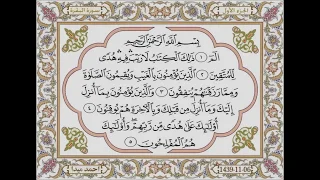 الجزء الأول
سورة البقرة
بِسْمِ اللَّهِ الرَّحْمَٰنِ الرَّحِيمِ
الٓمٓ ١ ذَٰلِكَ الْكِتَابُ لَا رَيْبَ ۛ فِيهِ ۛ هُدًى
لِّلْمُتَّقِينَ ٢ الَّذِينَ يُؤْمِنُونَ بِالْغَيْبِ وَيُقِيمُونَ الصَّلَاةَ
وَمِمَّا رَزَقْنَاهُمْ يُنفِقُونَ ٣ وَالَّذِينَ يُؤْمِنُونَ بِمَا أُنزِلَ
إِلَيْكَ وَمَا أُنزِلَ مِن قَبْلِكَ وَبِالْآخِرَةِ هُمْ يُوقِنُونَ ٤
أُولَٰئِكَ عَلَىٰ هُدًى مِّن رَّبِّهِمْ ۖ وَأُولَٰئِكَ
هُمُ الْمُفْلِحُونَ ٥
1439-11-06